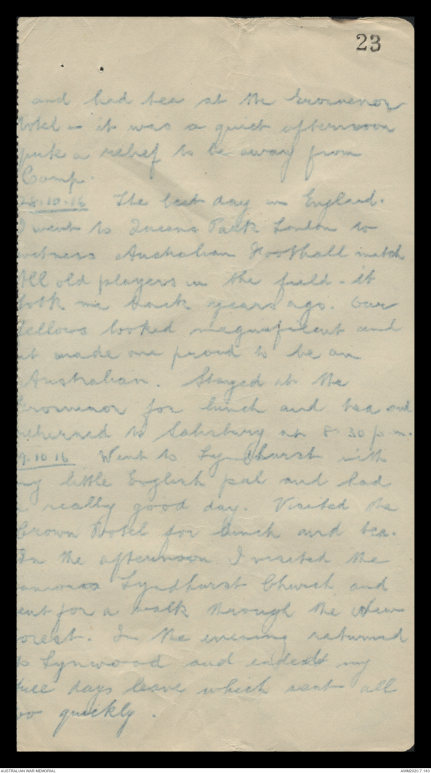 23
and had tea at the Grosvenor
Hotel - it was a quiet afternoon
quite a relief to be away from
Camp.
28.10.16 The best day in England.
I went to Queens Park London to
witness Australian Football match
All old players in the field - it
took me back years ago. Our
fellows looked magnificent and
it made one proud to be an
Australian. Stayed at the
Grosvenor for lunch and tea and
returned to Salisbury at 8.30 p.m.
9.10.16 Went to Lyndhurst with
my little English pal and had
a really good day. Visited the
Crown Hotel for lunch and tea.
In the afternoon I visited the
famous Lyndhurst Church and
went for a walk through the New
Forest. In the evening returned
to Lynwood and ended my
free days leave which went all
too quickly.
AUSTRALIAN WAR MEMORIAL